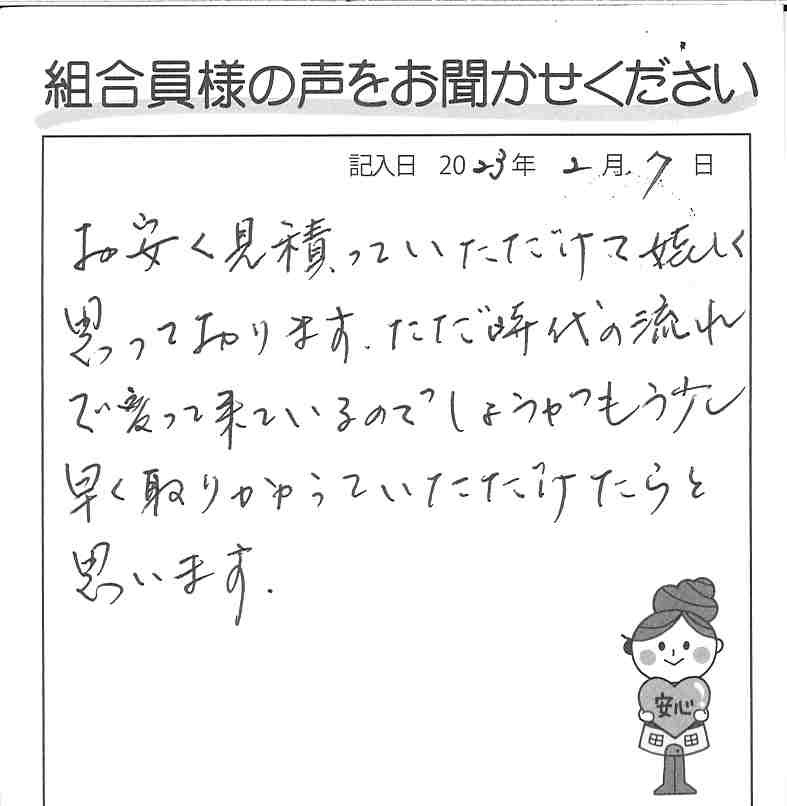 組合員様の声をお聞かせください
記入日 2023年 2月 7日
お安く見積っていただけて嬉しく
思っております。ただ時代の流れ
で変って来ているのでしょうがもう少し
早く取りかかっていただけたらと
思います.
安心